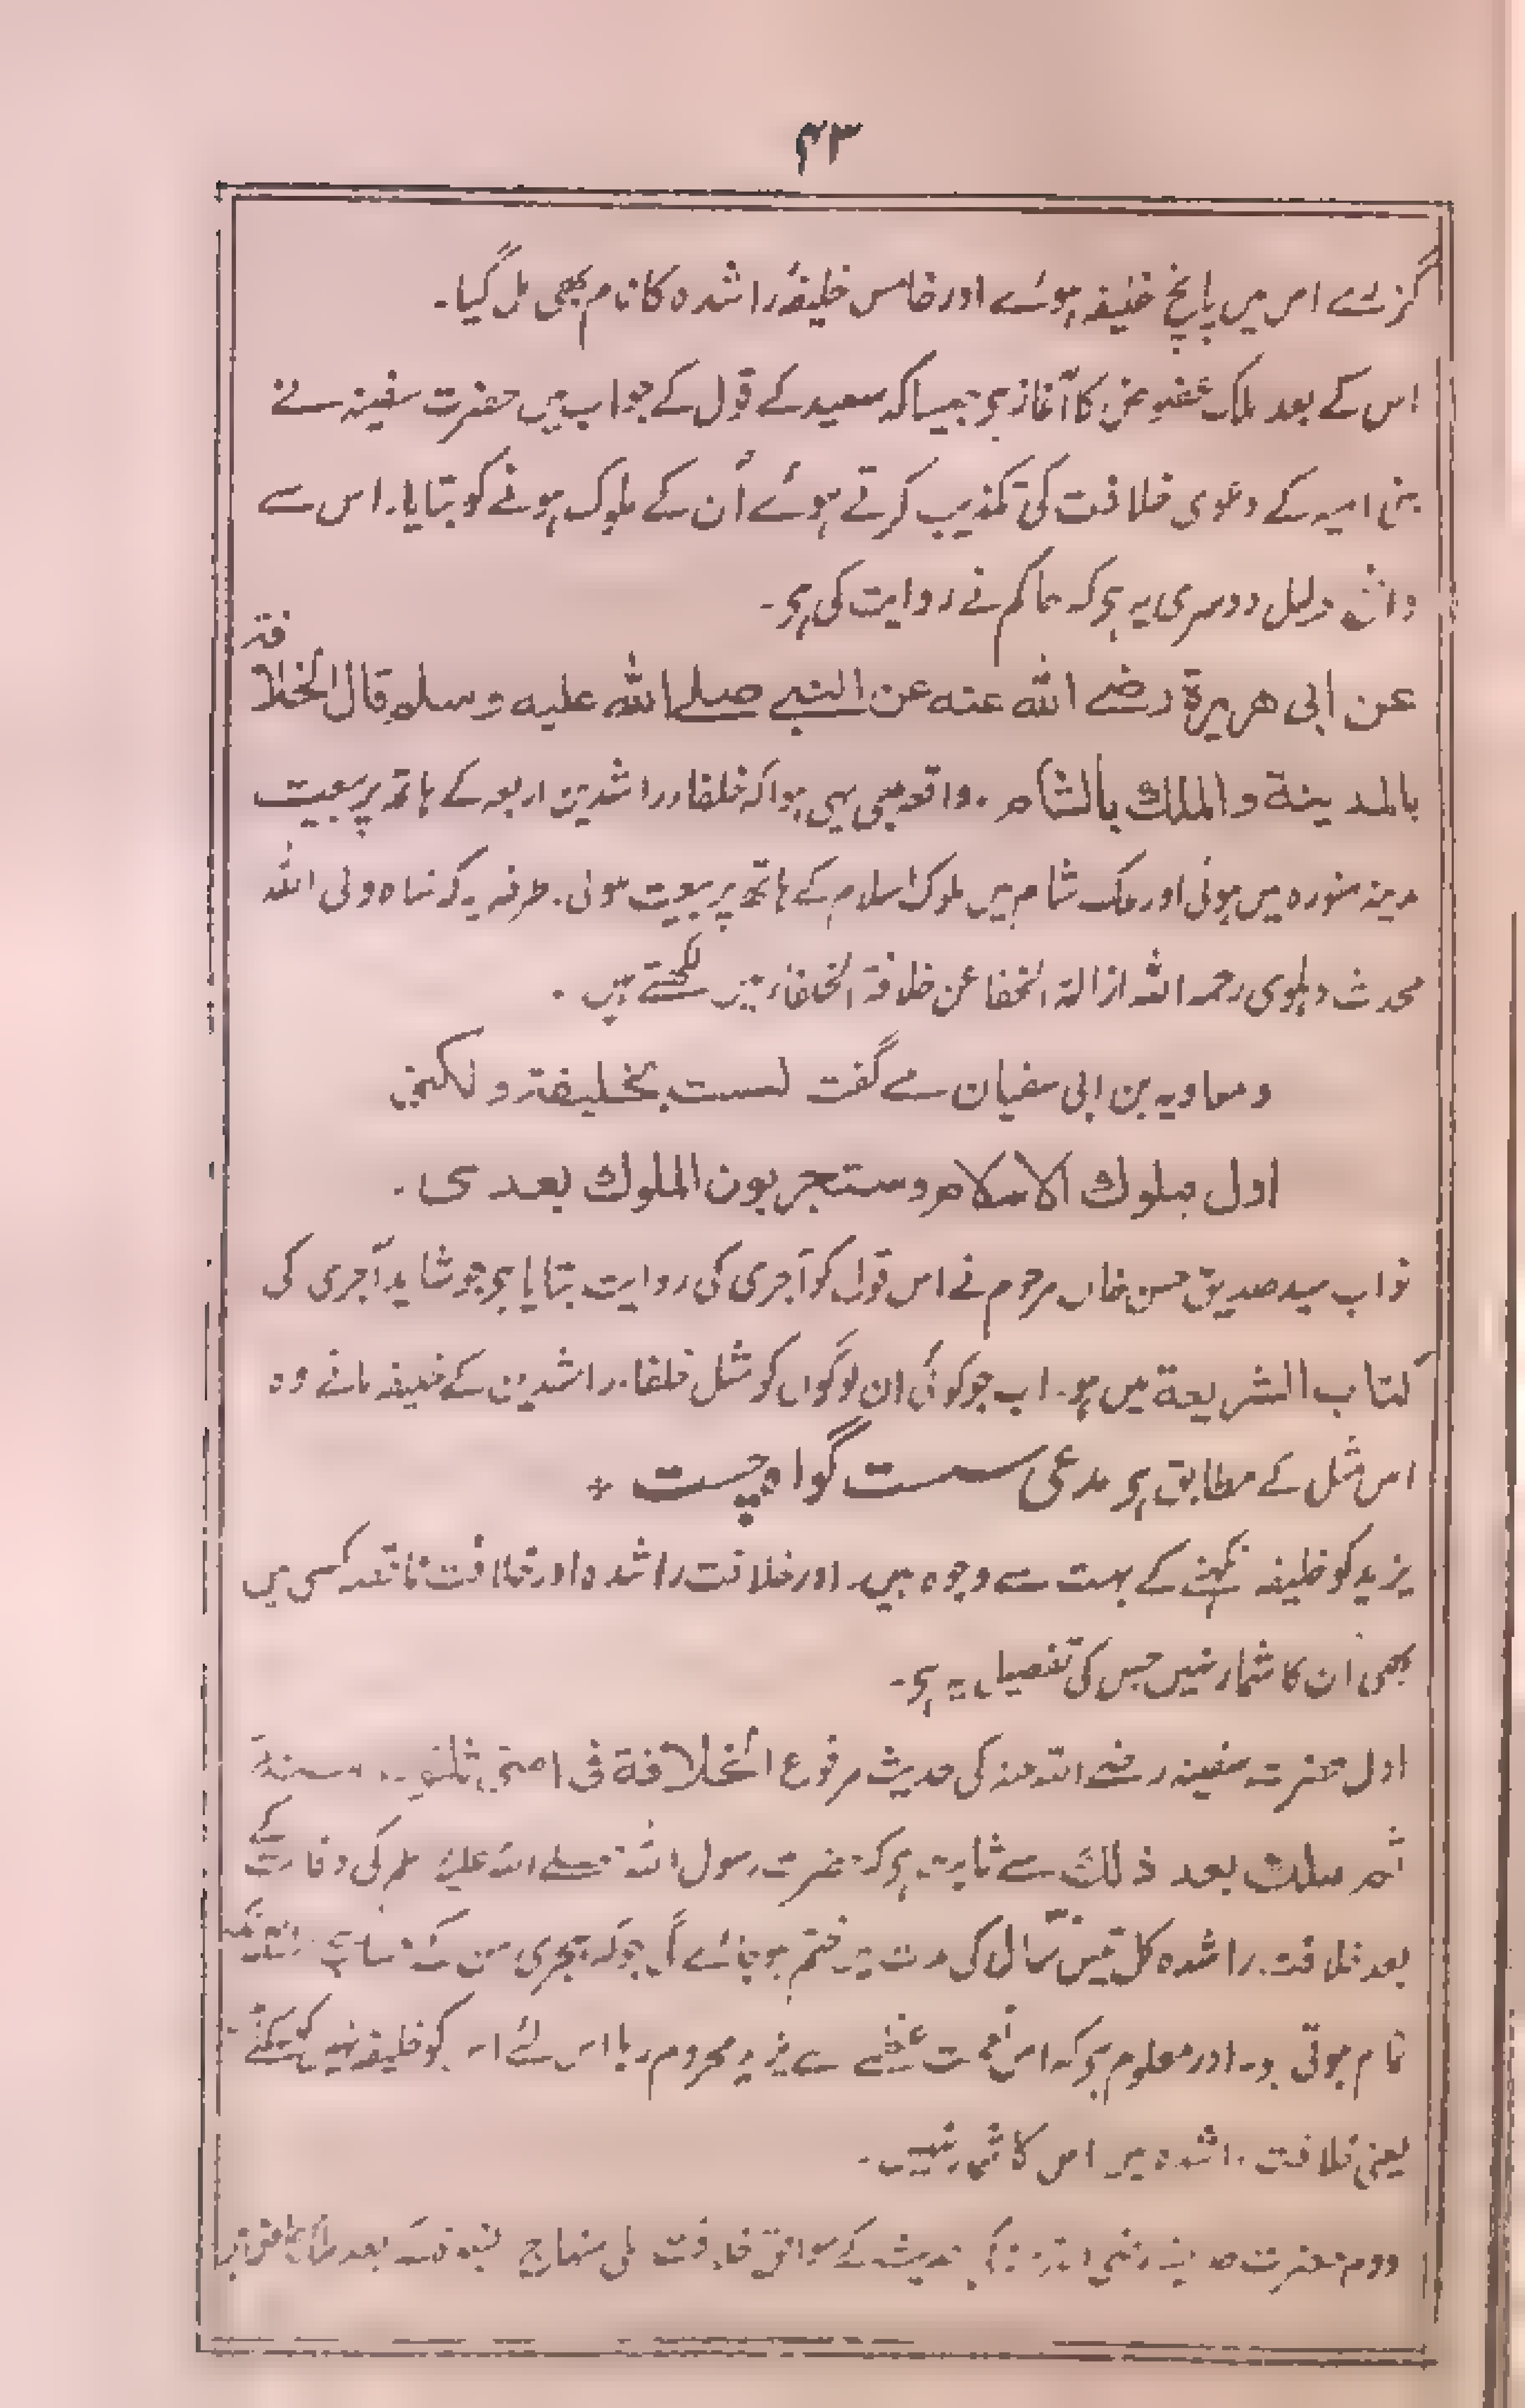 ۴۳
گزرے اس میں پانچ خلیفہ ہوئے اور خامس خلیفۂ راشدہ کا نام بھی مل گیا۔
اس کے بعد ملک عضوض کا آغاز ہی جیسا کہ سعید کے قول کے جواب میں حضرت سفینہ نے
بنی امیہ کے دعوی خلافت کی تکذیب کرتے ہوئے اُن کے ملوک ہونے کو بتایا۔ اس سے
دلیل دوسری یہ ہی کہ حاکم نے روایت کی ہی۔
عن ابی هریرة رضے الله عنه عن النبے صلے الله علیه وسلم قال الخلافة
بالمدینة والملك بالشام ۔ واقعہ بھی یہی ہوا کہ خلفاء راشدین اربعہ کے ہاتھ پر بیعت
مدینہ منورہ میں ہوئی اور ملک شام میں ملوک اسلام کے ہاتھ پر بیعت ہوئی۔ طرفہ یہ کہ شاہ ولی اللہ
محدث دہلوی رحمہ اللہ ازالۃ الخفا عن خلافۃ الخلفاء میں لکھتے ہیں ۔
و معاویہ بن ابی سفیان مے گفت لست بخلیفة ولکنی
اول ملوك الاسلام وستجربون الملوك بعدی ۔
نواب سید صدیق حسن خاں مرحوم نے اس قول کو آجری کی روایت بتایا ہی جو شاید آجری کی
کتاب الشریعة میں ہو۔ اب جو کوئی ان لوگوں کو مثل خلفاء راشدین کے خلیفہ مانے وہ
اس مثل کے مطابق ہی مدعی سست گواہ چست +
یزید کو خلیفہ نکہنے کے بہت سے وجوہ ہیں۔ اور خلافت راشدہ اور خلافت ناقصہ کسی میں
بھی اُن کا شمار نہیں جس کی تفصیل یہ ہی۔
اول حضرت سفینہ رضے اللہ عنہ کی حدیث مرفوع الخلافة فی امتی ثلثون سنة
ثم ملك بعد ذلك سے ثابت ہی کہ حضرت رسول اللہ صلے اللہ علیہ وسلم کی وفات کے
بعد خلافت راشدہ کل تیس سال کی مدت پر ختم ہو جائے گی جو کہ ہجری سن
تمام ہوتی ہی۔ اور معلوم ہی کہ اس نعمت عظمے سے یزید محروم رہا اس لئے اس کو خلیفہ نہیں کہہ سکتے
یعنی خلافت راشدہ میں اس کا شمار نہیں۔
دوم حضرت کی حدیث کے موافق خلافت علی منہاج بعد